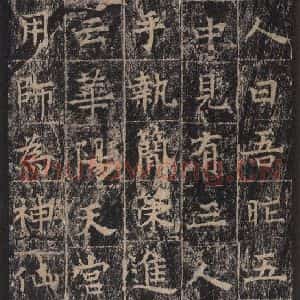 人曰吾昨五
中見有三人
手執簡進
云華陽天當
用師為神仙